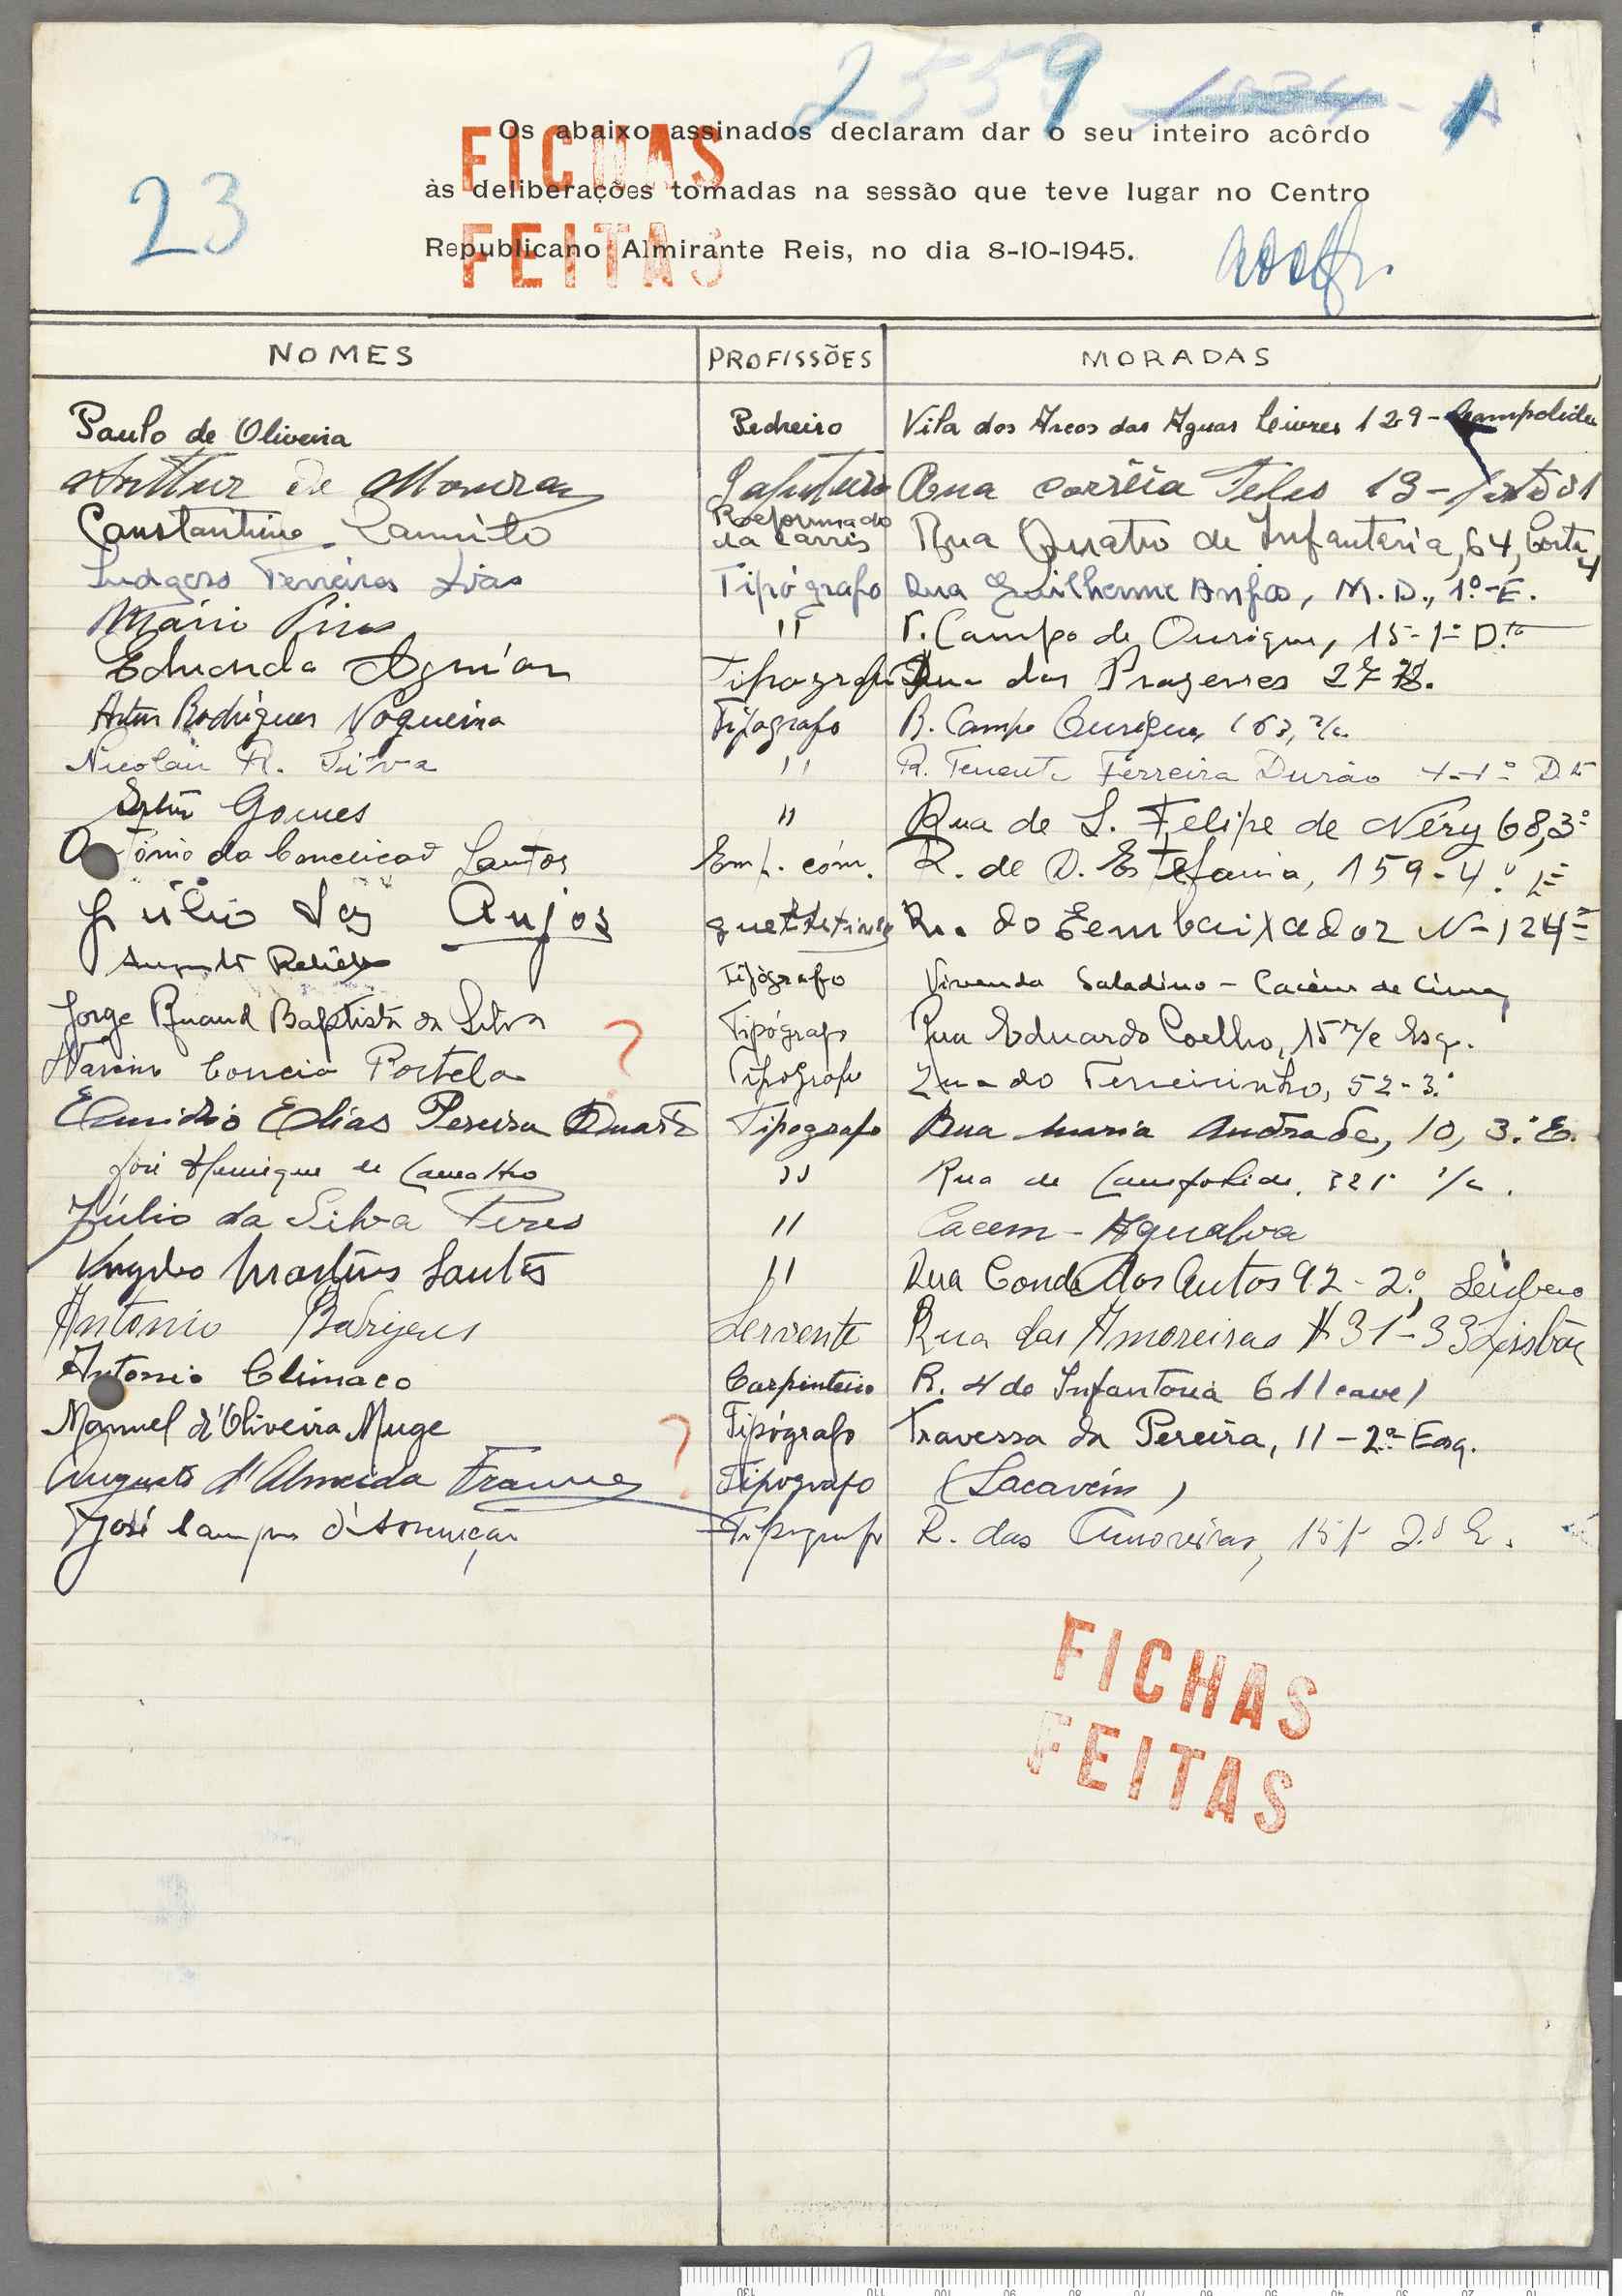 2559 1
Os abaixo assinados declaram dar o seu inteiro acôrdo
23
às deliberações tomadas na sessão que teve lugar no Centro
Republicano Almirante Reis, no dia 8-10-1945.
FICHAS
FEITAS
NOMES PROFISSÕES MORADAS
Paulo de Oliveira Pedreiro Vila dos Arcos das Aguas Leivres 129 - Campolide
Arthur de Moura Rua Corrêia Teles 13 -
Constantino Reformado da Carris Rua Quatro de Infantaria, 64, Porta 4
Ludgero Ferreira Dias Tipógrafo Rua Guilherme Anjos, M. D., 1.º-E.
Mário Pires " Campo de Ourique, 15-1º D.to
Eduardo Aguiar Tipografo Rua dos Prazeres 27
Artur Rodrigues Nogueira Tipografo R. Campo Ourique, 163, r/c
Nicolau R. Silva " R. Tenente Ferreira Durão 4-1º D.to
Gomes " Rua de S. Felipe de Néry 68, 3º
António da Conceição Santos Emp. com. R. de D. Estefania, 159-4.º
Júlio dos Anjos R. do Eembaixador N-124
Augusto Tipógrafo Vivenda Saladino - Cacém de Cima
Jorge Baptista da Silva ? Tipógrafo Rua Eduardo Coelho, 15 r/c Esq.
Correia Portela Tipografo Rua do Terreirinho, 52-3.º
Emidio Elias Pereira Duarte Tipografo Rua Maria Andrade, 10, 3.º E.
José Henrique de Carvalho " Rua de Campolide, r/c.
Júlio da Silva Peres " Cacem - Agualva
Martins Santos " Rua Conde das Antas 92-2.º,
Antonio Servente Rua das Amoreiras 31-33 Lisboa
Antonio Climaco Carpinteiro R. 4 de Infantaria 61 (cave)
Manuel d'Oliveira Muge ? Tipógrafo Travessa da Pereira, 11-2º Esq.
Augusto d'Almeida Tipografo (Sacavém)
José Campos d'Assunção Tipografo R. das Amoreiras, 2.º E.
FICHAS
FEITAS